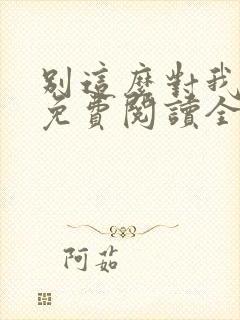 別這麼對我
免費閱讀全
阿茹